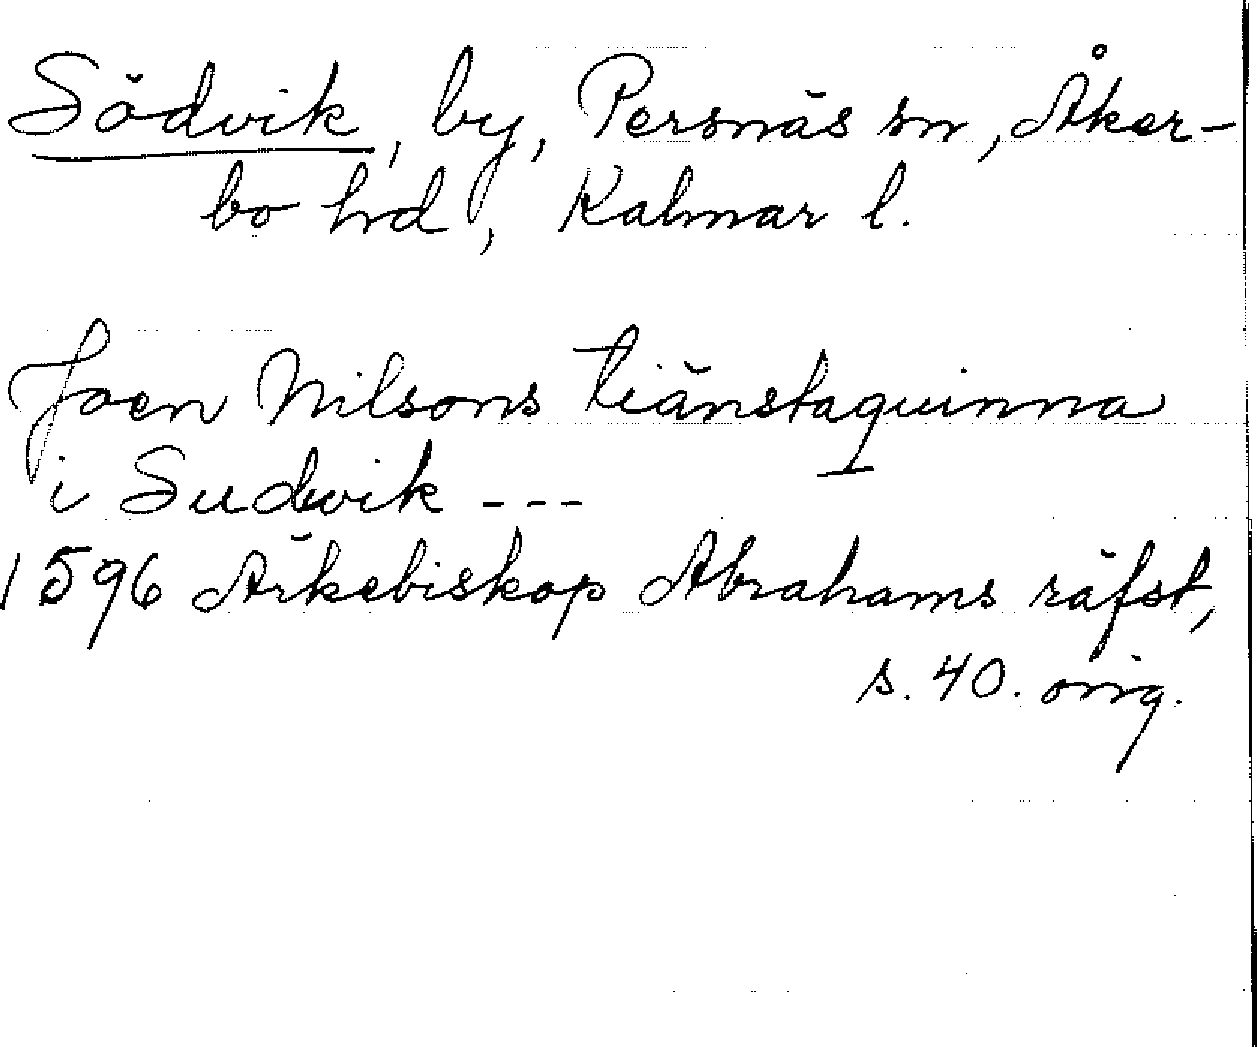 Södvik, by, Persnäs sn, Åker-
bo hd, Kalmar l.
Joen Nilsons tiänstaquinna
i Sudwik ---
1596 Ärkebiskop Abrahams räfst,
s. 40. orig.